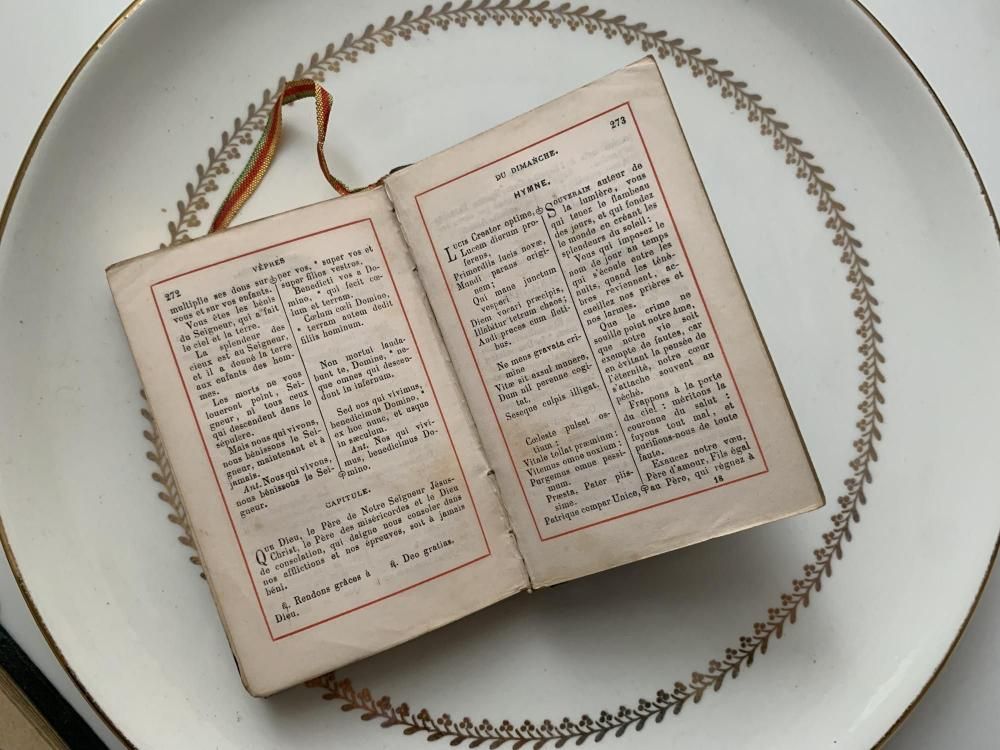 272
VÊPRES
multiplie ses dons sur
vous et sur vos enfants.
Vous êtes les bénis
du Seigneur, qui a fait
le ciel et la terre.
La splendeur des
cieux est au Seigneur,
et il a donné la terre
aux enfants des hom-
mes.
Les morts ne vous
loueront point, Sei-
gneur, ni tous ceux
qui descendent dans le
sépulcre.
Mais nous qui vivons,
nous bénissons le Sei-
gneur, maintenant et à
jamais.
Ant. Nous qui vivons,
nous bénissons le Sei-
gneur.
per vos, * super vos et
super filios vestros.
Benedicti vos a Do-
mino, * qui fecit cœ-
lum et terram.
Cœlum cœli Domino,
* terram autem dedit
filiis hominum.
Non mortui lauda-
bunt te, Domine, * ne-
que omnes qui descen-
dunt in infernum.
Sed nos qui vivimus,
benedicimus Domino, *
ex hoc nunc, et usque
in sæculum.
Ant. Nos qui vivi-
mus, benedicimus Do-
mino.
CAPITULE.
Que Dieu, le Père de Notre Seigneur Jésus-
Christ, le Père des miséricordes et le Dieu
de consolation, qui daigne nous consoler dans
nos afflictions et nos épreuves, soit à jamais
béni.
℟. Rendons grâces à
Dieu.
℟. Deo gratias.
273
DU DIMANCHE.
HYMNE.
Lucis Creator optime,
Lucem dierum pro-
ferens,
Primordiis lucis novæ,
Mundi parans origi-
nem:
Qui mane junctum
vesperi
Diem vocari præcipis,
Illabitur tetrum chaos;
Audi preces cum fleti-
bus.
Ne mens gravata cri-
mine
Vitæ sit exsul munere,
Dum nil perenne cogi-
tat,
Seseque culpis illigat.
Cœleste pulset os-
tium;
Vitale tollat præmium:
Vitemus omne noxium;
Purgemus omne pessi-
mum.
Præsta, Pater piis-
sime,
Patrique compar Unice,
Souverain auteur de
la lumière, vous
qui tenez le flambeau
des jours, et qui fondez
le monde en créant les
splendeurs du soleil;
Vous qui imposez le
nom de jour au temps
qui s'écoule entre les
nuits, quand les ténè-
bres reviennent, ac-
cueillez nos prières et
nos larmes.
Que le crime ne
souille point notre âme,
que notre vie soit
exempte de fautes, car
en évitant la pensée de
l'éternité, notre cœur
s'attache souvent au
péché.
Frappons à la porte
du ciel: méritons la
couronne du salut:
fuyons tout mal, et
purifions-nous de toute
faute.
Exaucez notre vœu,
Père d'amour, Fils égal
au Père, qui régnez à
18